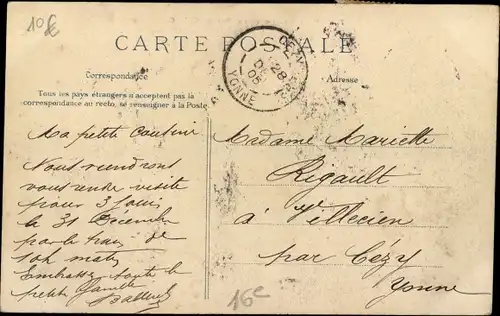 10€
CARTE POSTALE
CEZY
28
DE
05
YONNE
Correspondance
Adresse
Tous les pays étrangers n'acceptent pas la
correspondance au recto, se renseigner à la Poste
Ma petite cousine
Nous viendrons
vous rendre visite
pour 3 jours
le 31 Decembre
par le train de
10h matin
Embrasse toute la
petite famille
Madame Mariette
Rigault
à Villecien
par Cézy
Yonne
16€